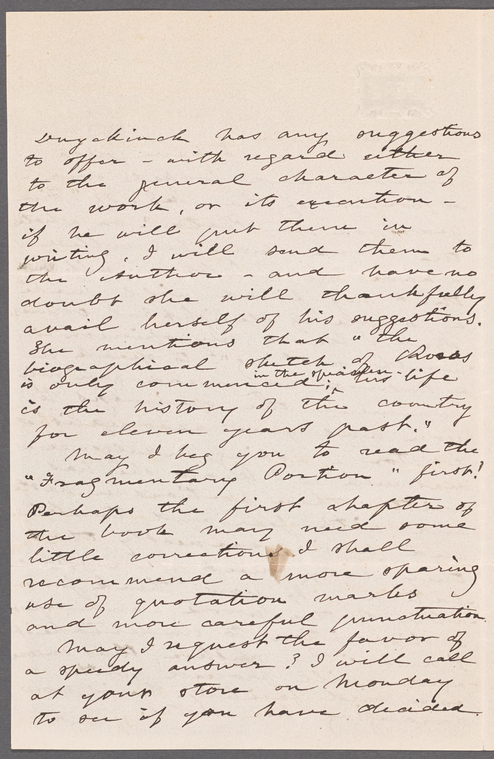 Duyckinck has any suggestions
to offer – with regard either
to the general character of
the work, or its execution –
if he will put them in
writing, I will send them to
the Author – and have no
doubt she will thankfully
avail herself of his suggestions.
She mentions that "the
biographical sketch of Rosas
is only commenced in the specimen: his life
is the history of the country
for eleven years past."
May I beg you to read the
"Fragmentary Portion" first?
Perhaps the first chapter of
the book may need some
little correction, I shall
recommend a more sparing
use of quotation marks
and more careful punctuation.
May I request the favor of
a speedy answer? I will call
at your store on Monday
to see if you have decided.